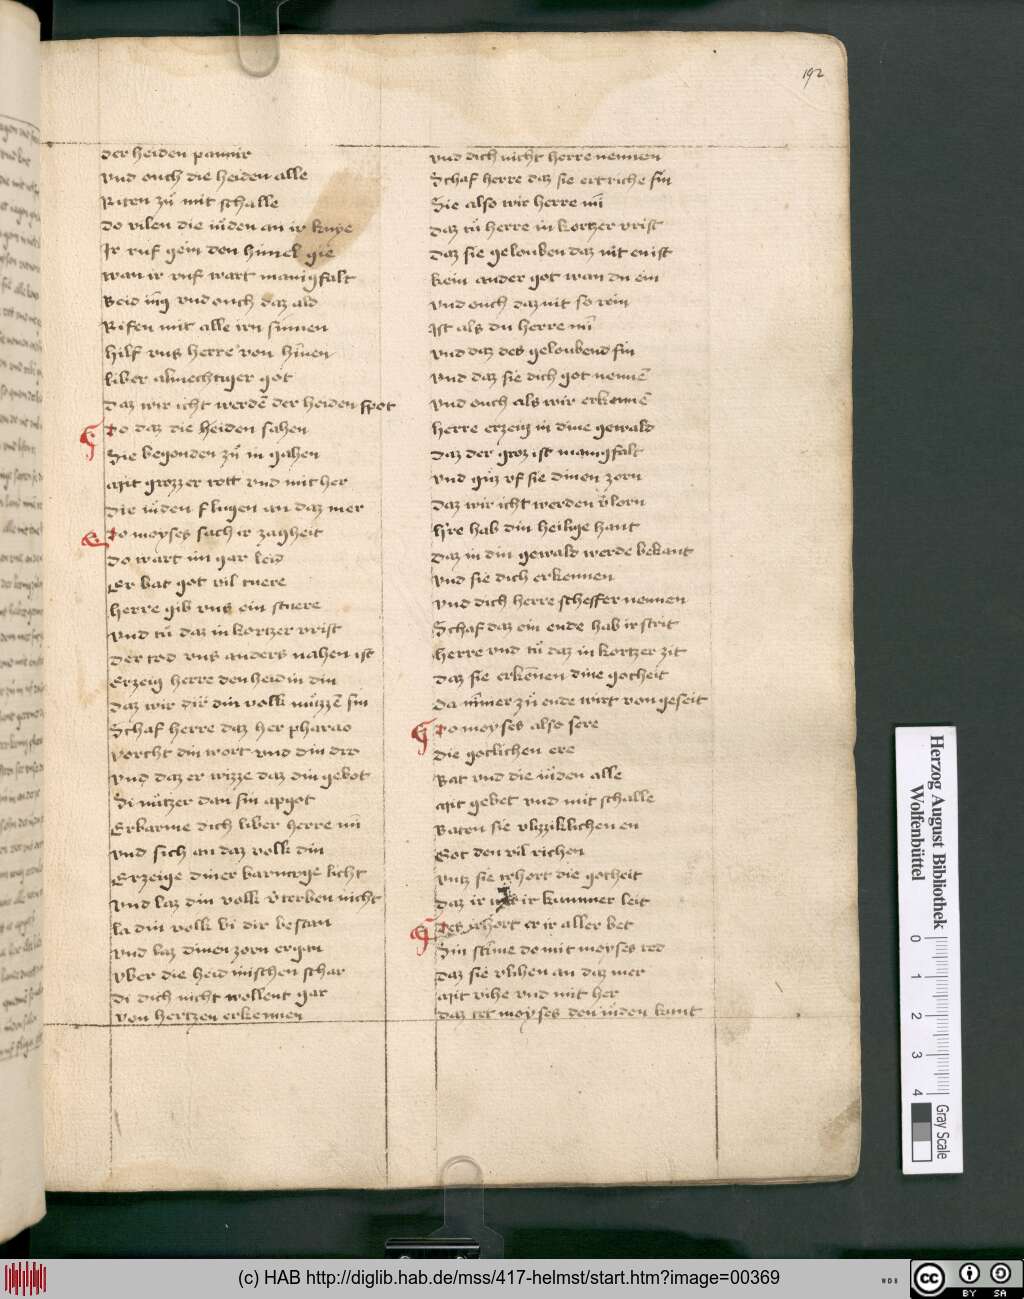 192
der heiden pannir
vnd ouch die heiden alle
Riten zů mit schalle
do vilen die iůden an ir knye
Ir ruf gein den himel gie
wan ir ruf wart manigfalt
Beid iūg vnd ouch daz ald
Rifen mit alle irn sinnen
hilf vns herre von himen
liber almechtiger got
daz wir icht werdē der heiden spot
Do daz die heiden sahen
Sie begonden zů in gahen
Mit grozzer rott vnd mit her
die iůden flugen an daz mer
Do moyses sach ir zagheit
do wart im gar leid
Er bat got vil tuere
herre gib vns ein stuere
vnd tů daz in kortzer vrist
der tod vns anders nahen ist
Erzeig herre den heidin din
daz wir dir din volk můzzē sin
Schaf herre daz her pharao
vorcht din wort vnd din dro
vnd daz er wizze daz din gebot
Si nůtzer dan sin apgot
Erbarme dich liber herre mī
vnd sich an daz volk din
Erzeige diner barmege licht
vnd laz din volk v̓terben nicht
la din volk bi dir bestan
vnd laz dinen zorn ergan
vber die heidinischen schar
di dich nicht wollent gar
von hertzen erkennen
vnd dich nicht herre nennen
Schaf herre daz sie ertriche sin
Sie also wir herre mī
daz tů herre in kortzer vrist
daz sie gelouben daz nit en ist
kein ander got wan du ein
vnd ouch daz nit so rein
Ist als du herre mī
vnd daz des geloubend sin
vnd daz sie dich got nennē
vnd ouch als wir erkennē
herre erzeig in dine gewald
daz der groz ist manigfalt
vnd gůz vf sie dinen zorn
daz wir icht werden v̓lorn
h̓re hab din heilige hant
daz in din gewald werde bekant
vnd sie dich erkennen
vnd dich herre scheffer nennen
Schaf daz ein ende hab ir strit
herre vnd tů daz in kortzer zit
daz sie erkēnen dine gotheit
da nimer zů ende wirt von geseit
Do moyses also sere
die gotlichen ere
Bat vnd die iůden alle
Mit gebet vnd mit schalle
Baten sie vlizziklichen en
Got den vil richen
vntz sie erhort die gotheit
daz ir ir kummer leit
Des erhort er ir aller bet
Sin stīme do mit moyses red
daz sie vlihen an daz mer
Mit vihe vnd mit her
daz tet moyses den iůden kunt
Herzog August Bibliothek
Wolfenbüttel
0
1
2
3
4
Gray Scale
(c) HAB http://diglib.hab.de/mss/417-helmst/start.htm?image=00369
WDB
cc
BY SA